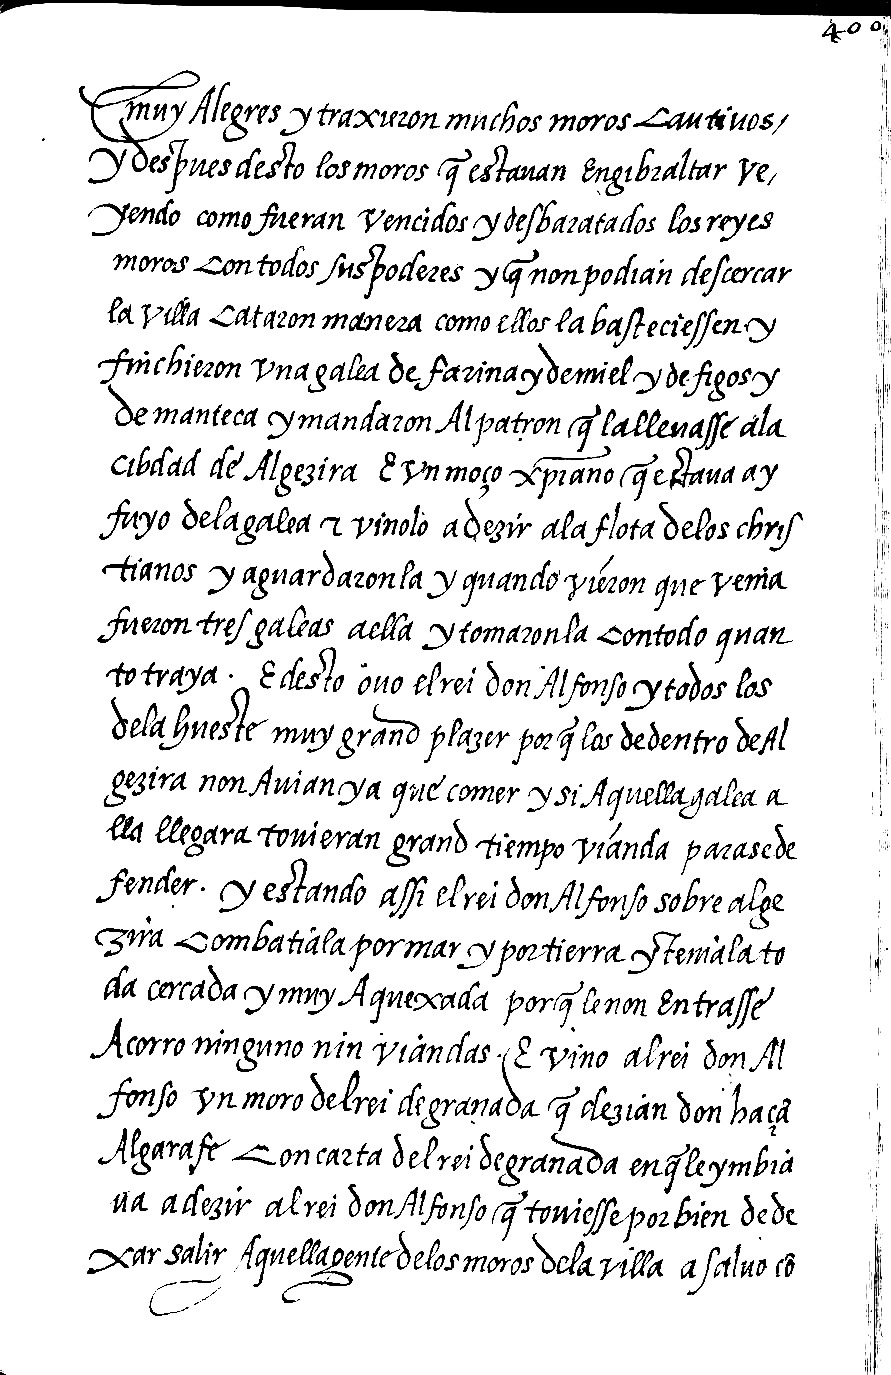 400
muy Alegres y traxieron muchos moros Cautiuos,
y despues desto los moros q̃ estauan Engibraltar ve,
yendo como fueran vencidos y desbaratados los reyes
moros Con todos sus poderes y q̃ non podian descercar
la villa Cataron manera como ellos la basteciessen y
finchieron vna galea de farina y de miel y de figos y
de manteca y mandaron Al patron q̃ la lleuasse ala
cibdad de Algezira E vn moço xp̃iano q̃ estaua ay
fuyo dela galea τ vinolo a dezir ala flota delos chris
tianos y aguardaronla y quando vieron que venia
fueron tres galeas aella y tomaronla Contodo quan
to traya. E desto ouo el rei don Alfonso y todos los
dela hueste muy grand plazer porq̃ los dedentro de Al
gezira non Auian ya que comer y si Aquella galea a
lla llegara touieran grand tiempo vianda para se de
fender. y estando assi el rei don Alfonso sobre alge
zira Combatiala por mar y por tierra y teniala to
da cercada y muy Aquexada porq̃ le non Entrasse
Acorro ninguno nin viandas. E vino al rei don Al
fonso vn moro del rei de granada q̃ dezian don haçã
Algarafe Con carta del rei de granada en q̃ le ymbia
ua a dezir al rei don Alfonso q̃ touiesse por bien de de
xar salir Aquella gente delos moros dela villa a saluo cõ